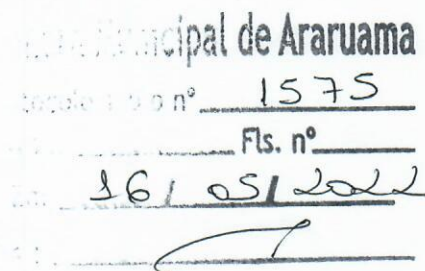 cipal de Araruama
nº 1575
Fls. nº
16 / 05 / 2022